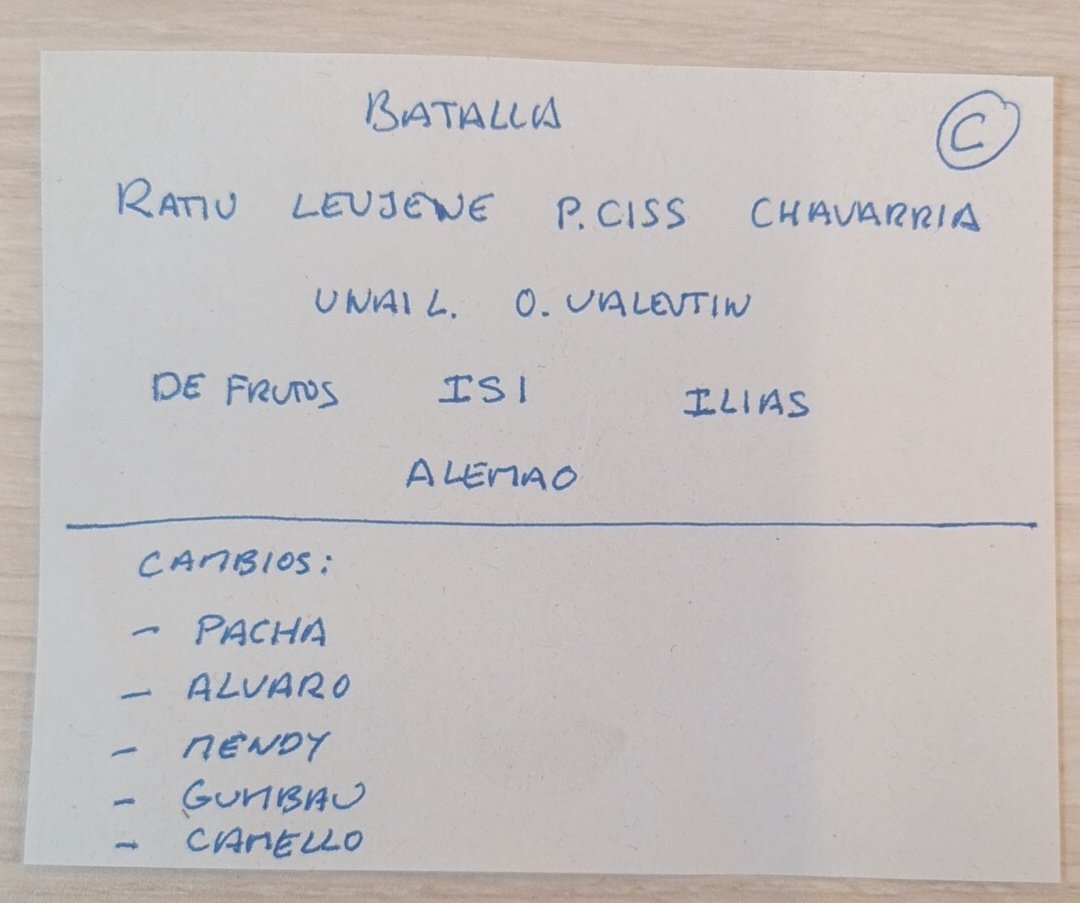 BATALLA
C
RATIU LEUJENE P. CISS CHAVARRIA
UNAI L. O. VALENTIN
DE FRUTOS ISI ILIAS
ALEMAO
CAMBIOS:
- PACHA
- ALVARO
- MENDY
- GUMBAU
- CAMELLO